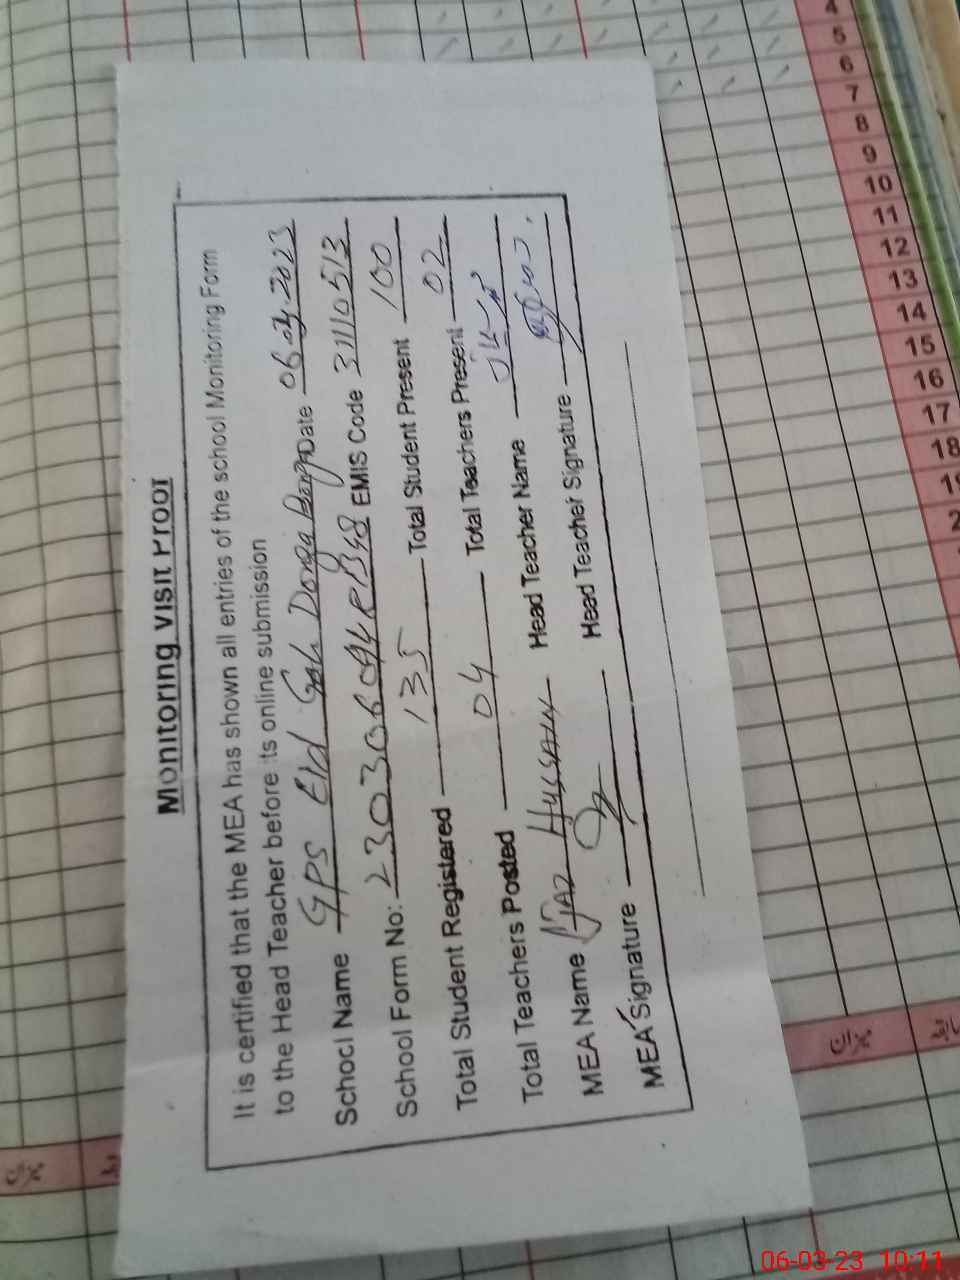 Monitoring Visit Proof
It is certified that the MEA has shown all entries of the school Monitoring Form
to the Head Teacher before its online submission
School Name GPS Eid Gah Donga Date 06.03.2023
School Form No: EMIS Code 31110513
Total Student Registered 135 Total Student Present 100
Total Teachers Posted 04 Total Teachers Present 02
MEA Name Ijaz Hussain Head Teacher Name
MEA Signature Head Teacher Signature
4
5
6
7
8
9
10
11
12
13
14
15
16
17
18
میزان
میزان
06-03-23 10:11